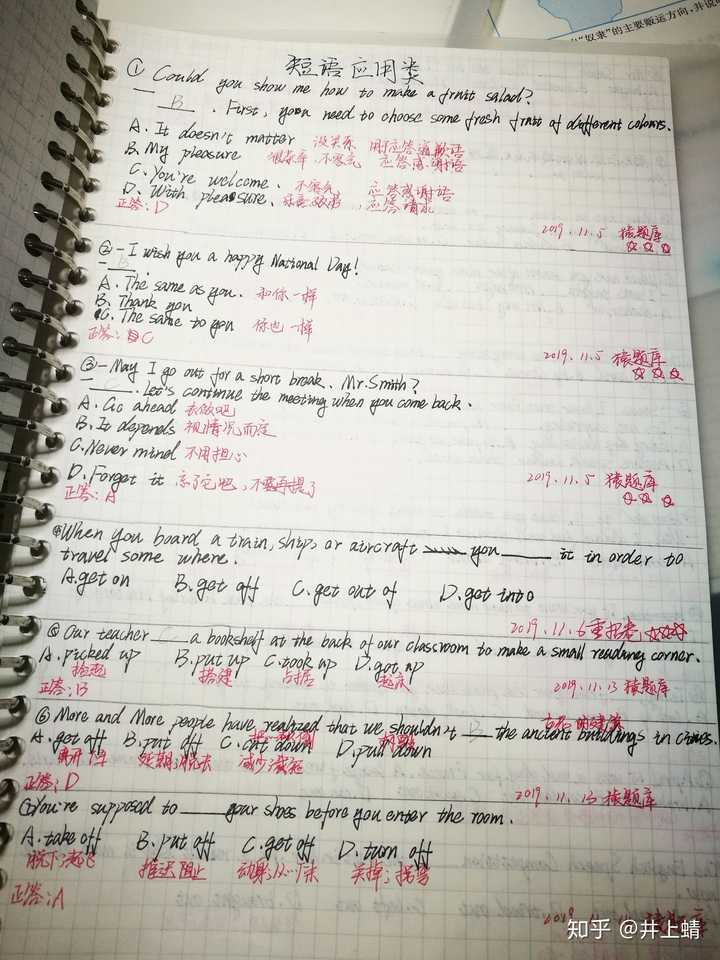 "奴隶"的主要贩运方向,并说
短语应用类
① Could you show me how to make a fruit salad?
— B . First, you need to choose some fresh fruit of different colours.
A. It doesn't matter 没关系 用于应答道歉语
B. My pleasure 很荣幸,不客气 应答感谢语
C. You're welcome. 不客气 应答感谢语
D. With pleasure. 乐意效劳,应答请求
正答:D
2019.11.5 猿题库
☆☆☆
② - I wish you a happy National Day!
- B.
A. The same as you. 和你一样
B. Thank you
C. The same to you 你也一样
正答:C
2019.11.5 猿题库
☆☆☆
③ - May I go out for a short break, Mr.Smith?
- C. Let's continue the meeting when you come back.
A. Go ahead 去做吧
B. It depends 视情况而定
C. Never mind 不用担心
D. Forget it 忘了它吧,不要再提了
正答:A
2019.11.5 猿题库
☆☆☆
④ When you board a train, ship, or aircraft you ____ it in order to
travel some where.
A. get on B. get off C. get out of D. get into
2019.11.6
☆☆☆
⑤ Our teacher ____ a bookshelf at the back of our classroom to make a small reading corner.
A. picked up B. put up C. took up D. got up
捡起 搭建 占据 起床
正答:B
2019.11.13 猿题库
⑥ More and More people have realized that we shouldn't B the ancient buildings in cities.
A. get off B. put off C. cut down D. pull down
离开;下车 延期;脱去 减少
正答:D
2019.11.13 猿题库
You're supposed to ____ your shoes before you enter the room.
A. take off B. put off C. get off D. turn off
脱下;起飞 推迟 阻止 动身;从…下来 关掉;拐弯
正答:A
猿题库
知乎 @井上蜻